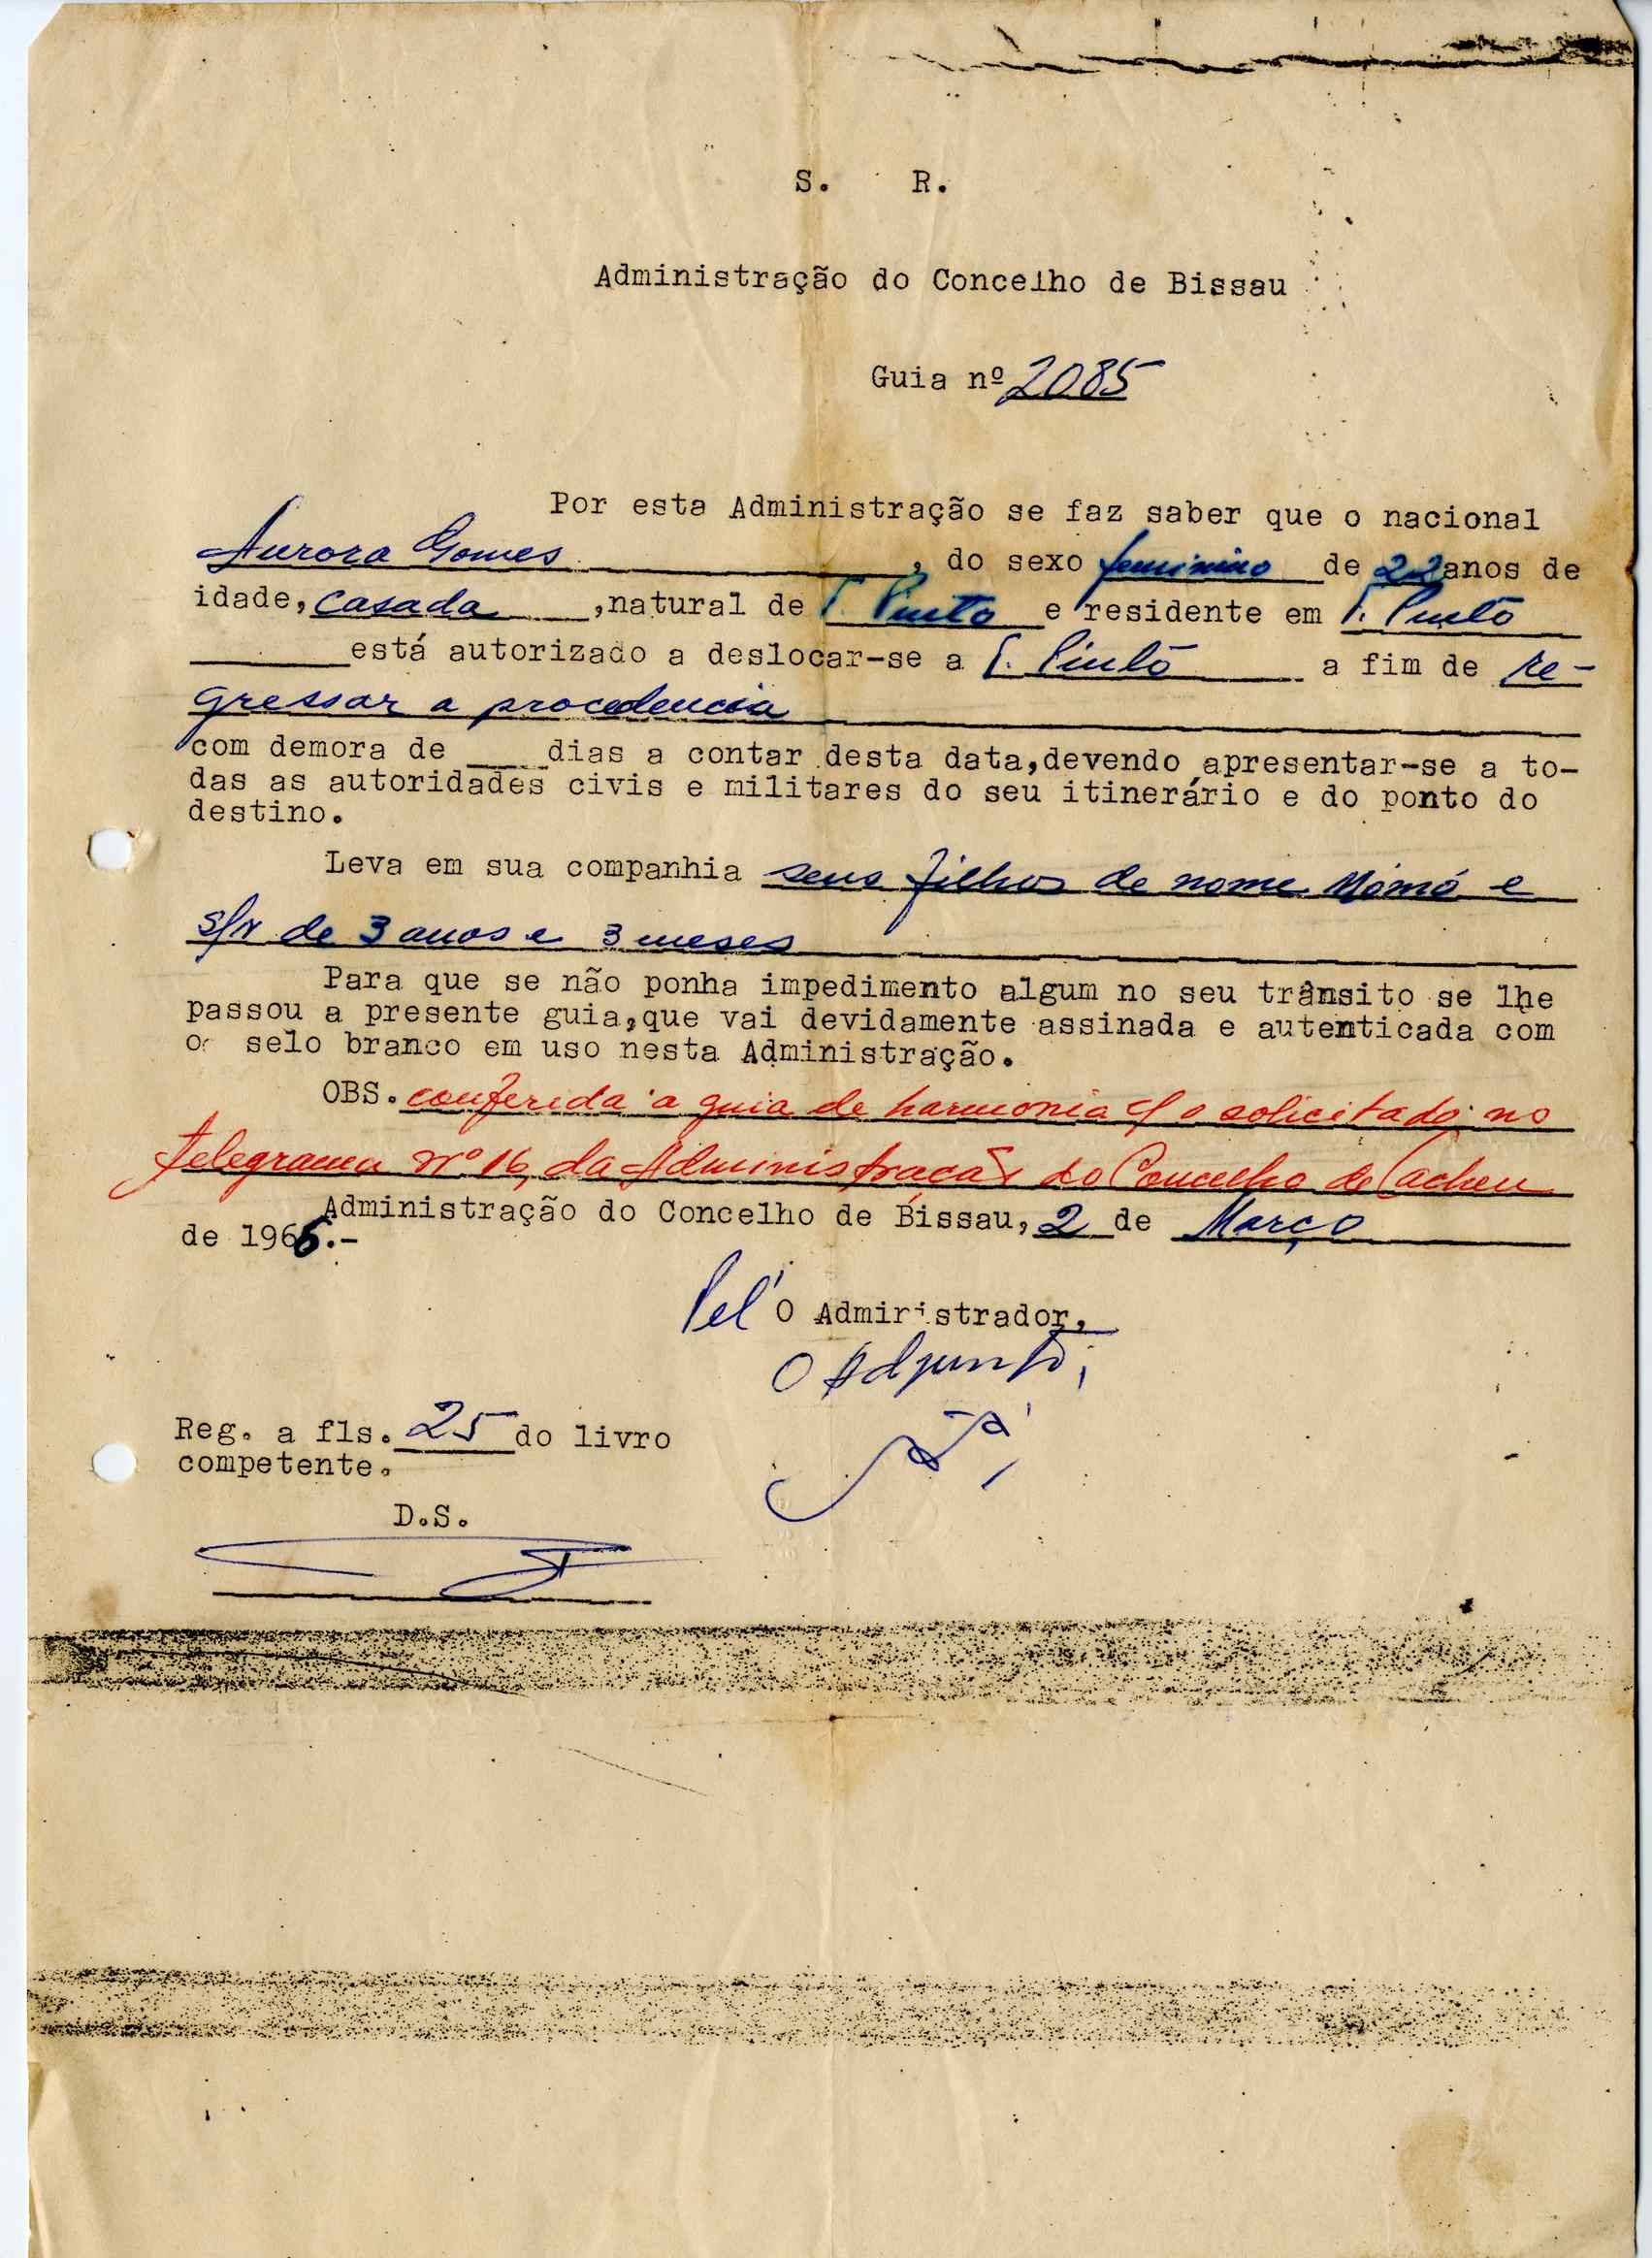 S. R.
Administração do Concelho de Bissau
Guia nº 2085
Por esta Administração se faz saber que o nacional
Aurora Gomes, do sexo feminino de 22 anos de
idade, casada, natural de T. Pinto e residente em T. Pinto
está autorizado a deslocar-se a T. Pinto a fim de re-
gressar a procedencia
com demora de ___ dias a contar desta data, devendo apresentar-se a to-
das as autoridades civis e militares do seu itinerário e do ponto do
destino.
Leva em sua companhia seus filhos de nome Mómó e
s/n de 3 anos e 3 meses
Para que se não ponha impedimento algum no seu trânsito se lhe
passou a presente guia, que vai devidamente assinada e autenticada com
o selo branco em uso nesta Administração.
OBS. conferida a guia de harmonia c/ o solicitado no
telegrama nº 16, da Administração do Concelho de Cacheu
Administração do Concelho de Bissau, 2 de Março
de 1966.-
Pel' O Administrador,
O Adjunto,
Reg. a fls. 25 do livro
competente.
D.S.